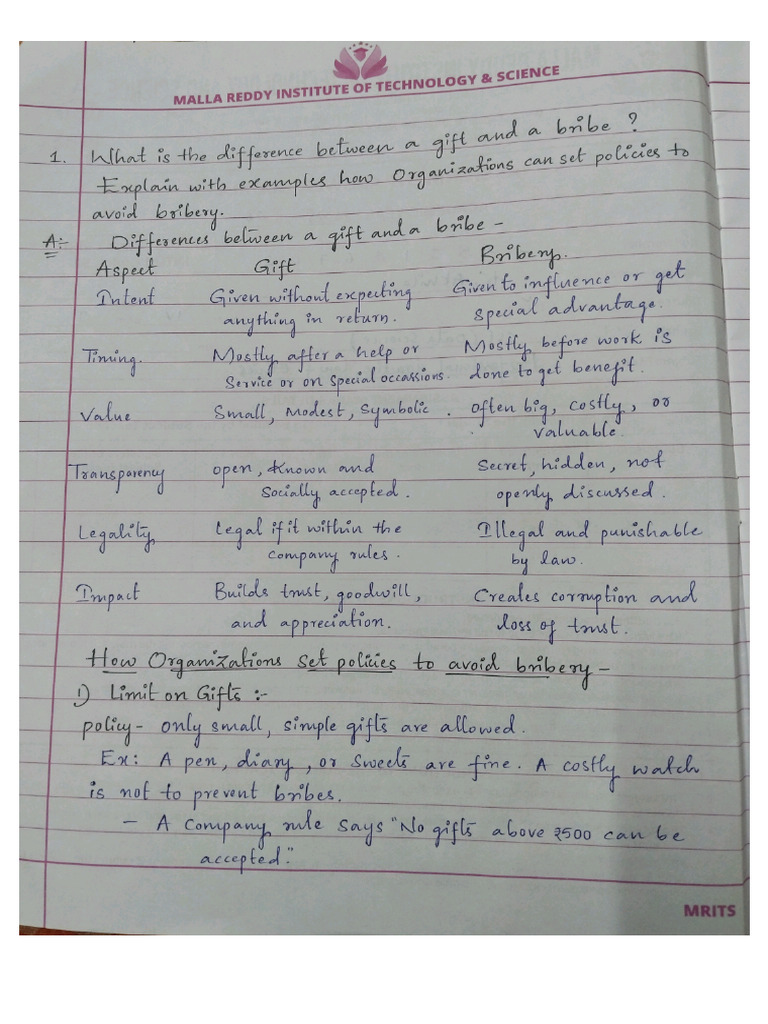 MALLA REDDY INSTITUTE OF TECHNOLOGY & SCIENCE
1. What is the difference between a gift and a bribe ?
Explain with examples how Organizations can set policies to
avoid bribery.
A:- Differences between a gift and a bribe -
Aspect Gift Bribery.
Intent Given without expecting Given to influence or get
anything in return. special advantage.
Timing. Mostly after a help or Mostly before work is
Service or on special occassions. done to get benefit.
Value Small, Modest, Symbolic. often big, costly, or
valuable.
Transparency open, known and Secret, hidden, not
socially accepted. openly discussed.
Legality Legal if it within the Illegal and punishable
company rules. by law.
Impact Builds trust, goodwill, Creates corruption and
and appreciation. loss of trust.
How Organizations set policies to avoid bribery -
1) Limit on Gifts :-
policy - only small, simple gifts are allowed.
Ex: A pen, diary, or sweets are fine. A costly watch
is not to prevent bribes.
- A company rule says "No gifts above ₹500 can be
accepted."
MRITS